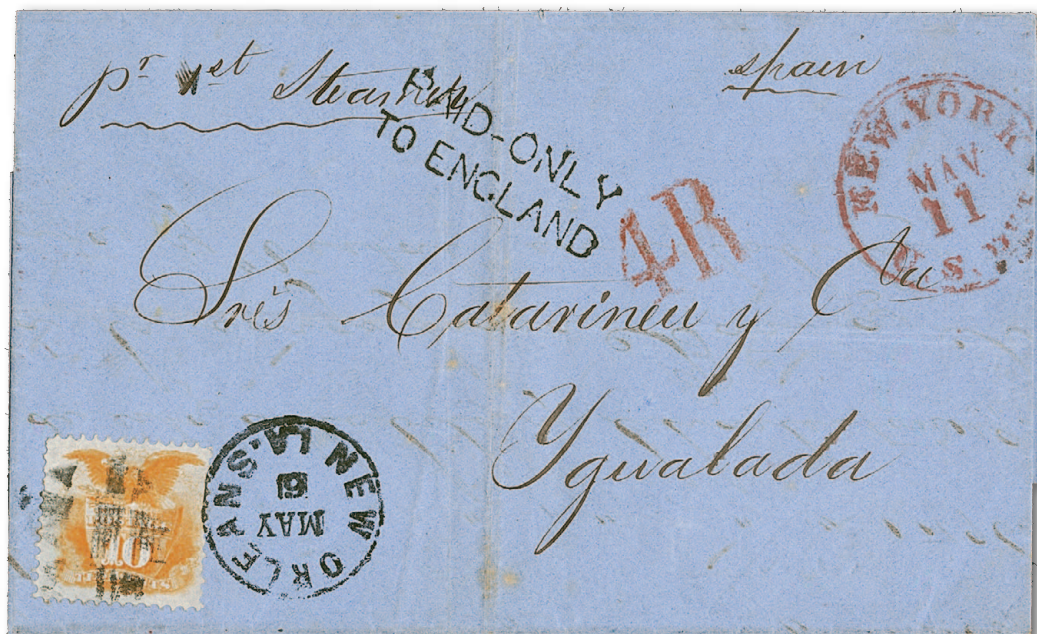 pr 1st Steamer
spain
PAID-ONLY
TO ENGLAND
NEW-YORK
MAY
11
U.S.
4R
Sres Catarineu y Cia
Ygualada
NEW ORLEANS. LA.
MAY
10